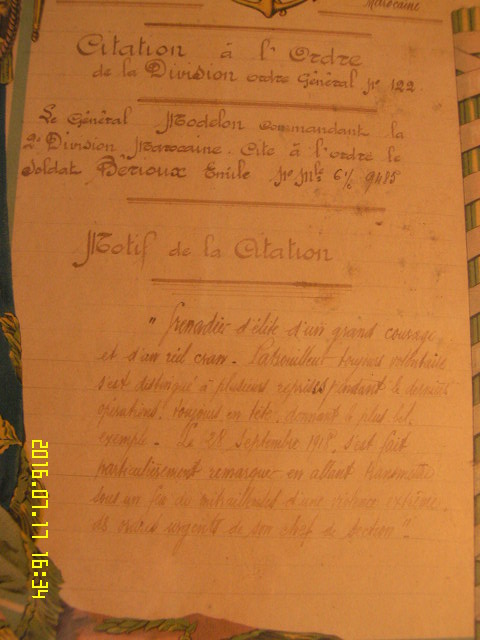 Marocaine
Citation à l'Ordre
de la Division Ordre Général N° 122
Le Général Modelon Commandant la
2e Division Marocaine. Cite à l'ordre le
Soldat Bérioux Emile N° Mle 6% 9485
Motif de la Citation
" Grenadier d'élite d'un grand courage
et d'un réel cran. Patrouilleur toujours volontaire
s'est distingué à plusieurs reprises pendant le dernières
opérations, toujours en tête, donnant le plus bel
exemple. Le 28 Septembre 1918, s'est fait
particulièrement remarquer en allant transmettre
sous un feu de mitrailleuses d'une violence extrême
des ordres urgents de son chef de section".
2016.07.17 16:34